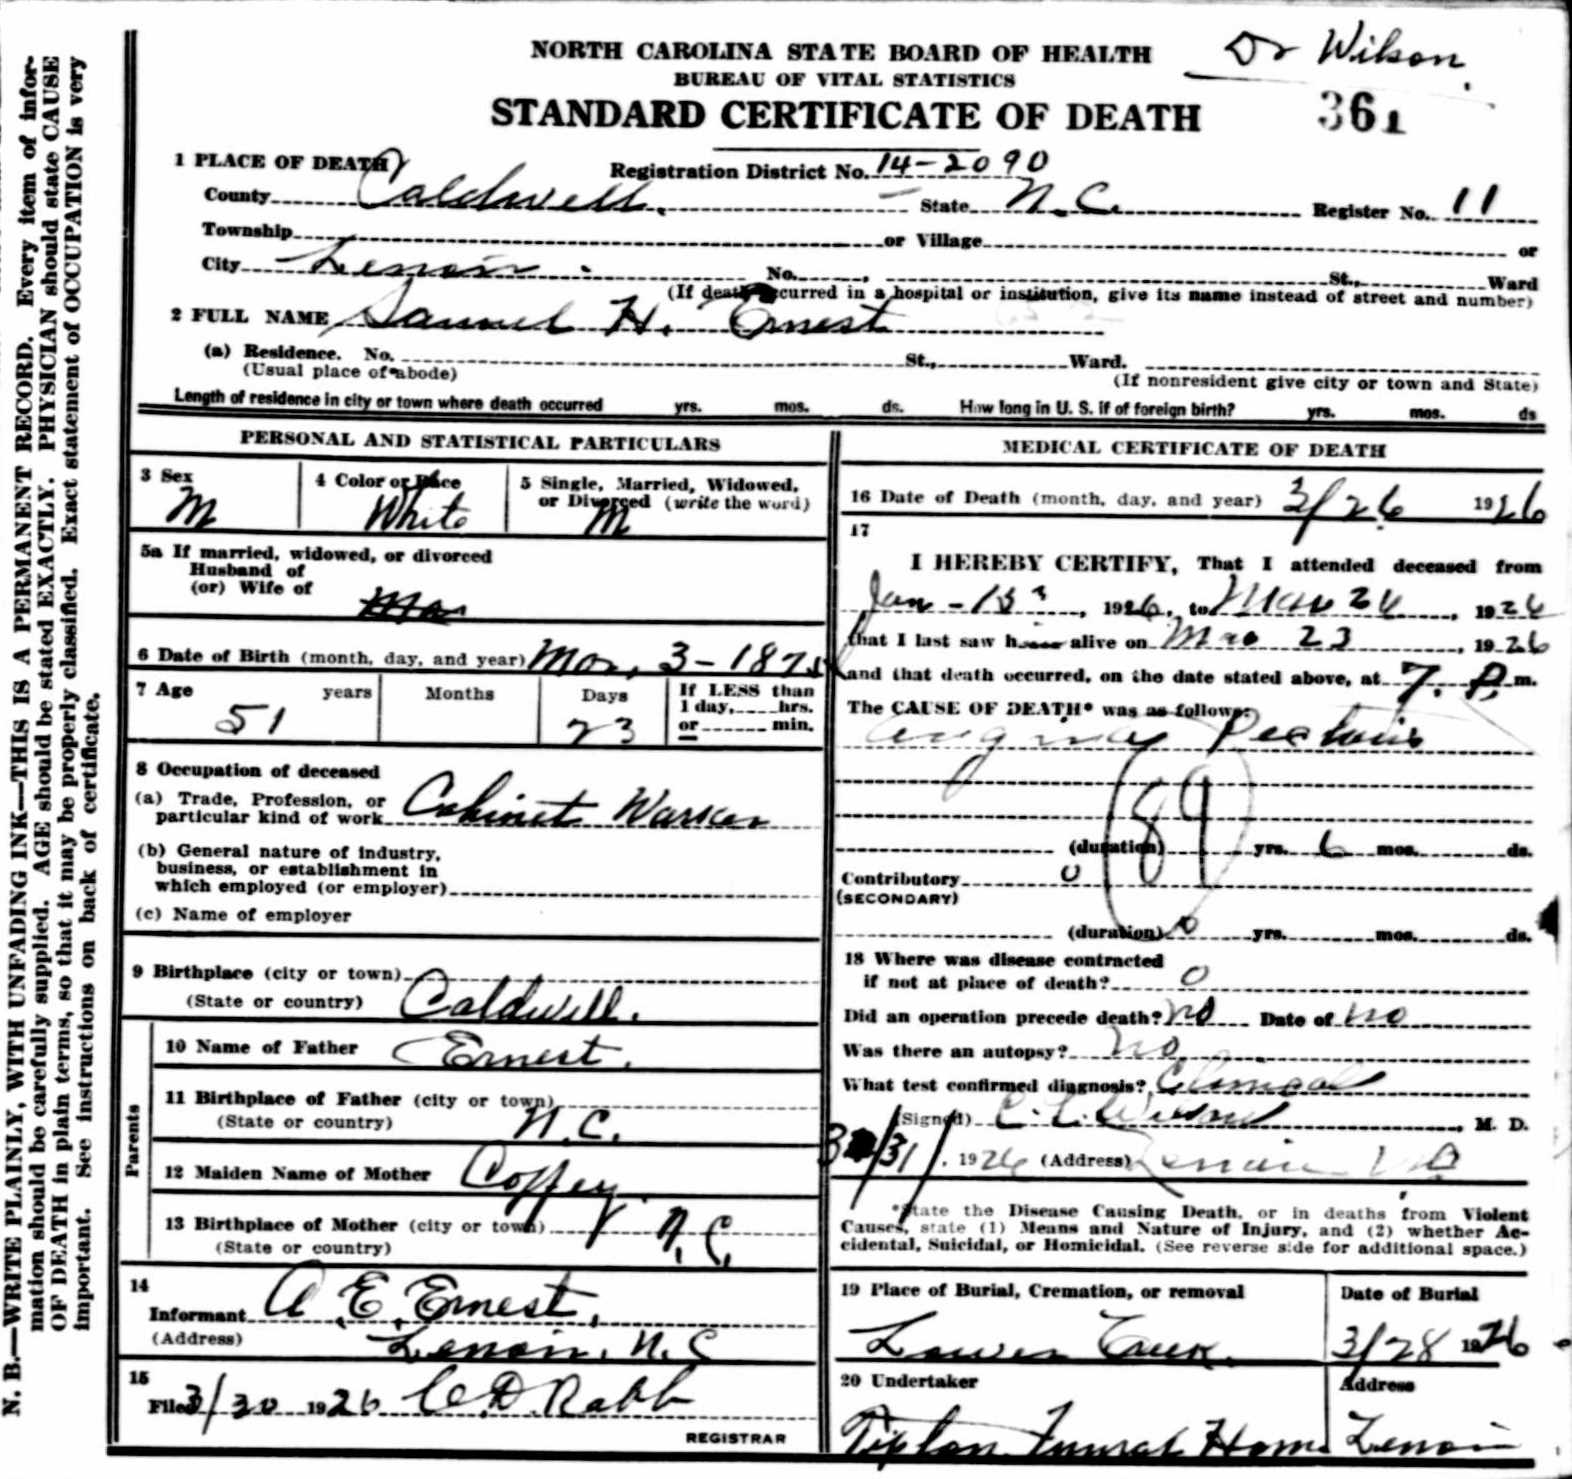 Dr Wilson
NORTH CAROLINA STATE BOARD OF HEALTH
BUREAU OF VITAL STATISTICS
STANDARD CERTIFICATE OF DEATH
361
1 PLACE OF DEATH
Registration District No. 14-2090
County Caldwell. State N.C. Register No. 11
Township or Village or
City Lenoir. No. , St., Ward
(If death occurred in a hospital or institution, give its name instead of street and number)
2 FULL NAME Samuel H. Ernest
(a) Residence. No. St., Ward.
(Usual place of abode) (If nonresident give city or town and State)
Length of residence in city or town where death occurred yrs. mos. ds. How long in U. S. if of foreign birth? yrs. mos. ds
PERSONAL AND STATISTICAL PARTICULARS
3 Sex M
4 Color or Race White
5 Single, Married, Widowed,
or Divorced (write the word) M
5a If married, widowed, or divorced
Husband of
(or) Wife of
6 Date of Birth (month, day, and year) Mar, 3-1875
7 Age years Months Days If LESS than
1 day, hrs.
or min.
51 23
8 Occupation of deceased
(a) Trade, Profession, or
particular kind of work Cabinet Worker
(b) General nature of industry,
business, or establishment in
which employed (or employer)
(c) Name of employer
9 Birthplace (city or town)
(State or country) Caldwell.
Parents
10 Name of Father Ernest.
11 Birthplace of Father (city or town)
(State or country) N.C.
12 Maiden Name of Mother Coffey
13 Birthplace of Mother (city or town) N.C.
(State or country)
14
Informant A.E. Ernest,
(Address) Lenoir, N.C
15
Filed 3/30 1926 C.D. Rabb
REGISTRAR
MEDICAL CERTIFICATE OF DEATH
16 Date of Death (month, day, and year) 3/26 1926
17
I HEREBY CERTIFY, That I attended deceased from
Jan - 15, 1926, to Mar 26, 1926
that I last saw him alive on Mar 23, 1926
and that death occurred, on the date stated above, at 7. P. m.
The CAUSE OF DEATH* was as follows:
Angina Pectoris
89
(duration) yrs. 6 mos. ds.
Contributory 0
(SECONDARY)
(duration) 0 yrs. mos. ds.
18 Where was disease contracted
if not at place of death? 0
Did an operation precede death? no Date of no
Was there an autopsy? no
What test confirmed diagnosis? Clinical
(Signed) C. L. Wilson, M. D.
3/31/, 1926 (Address) Lenoir N.C
*State the Disease Causing Death, or in deaths from Violent
Causes, state (1) Means and Nature of Injury, and (2) whether Ac-
cidental, Suicidal, or Homicidal. (See reverse side for additional space.)
19 Place of Burial, Cremation, or removal
Date of Burial
Lower Creek.
3/28 1926
20 Undertaker
Address
Tipton Funeral Home Lenoir
N. B.—WRITE PLAINLY, WITH UNFADING INK—THIS IS A PERMANENT RECORD. Every item of infor-
mation should be carefully supplied. AGE should be stated EXACTLY. PHYSICIAN should state CAUSE
OF DEATH in plain terms, so that it may be properly classified. Exact statement of OCCUPATION is very
important. See instructions on back of certificate.